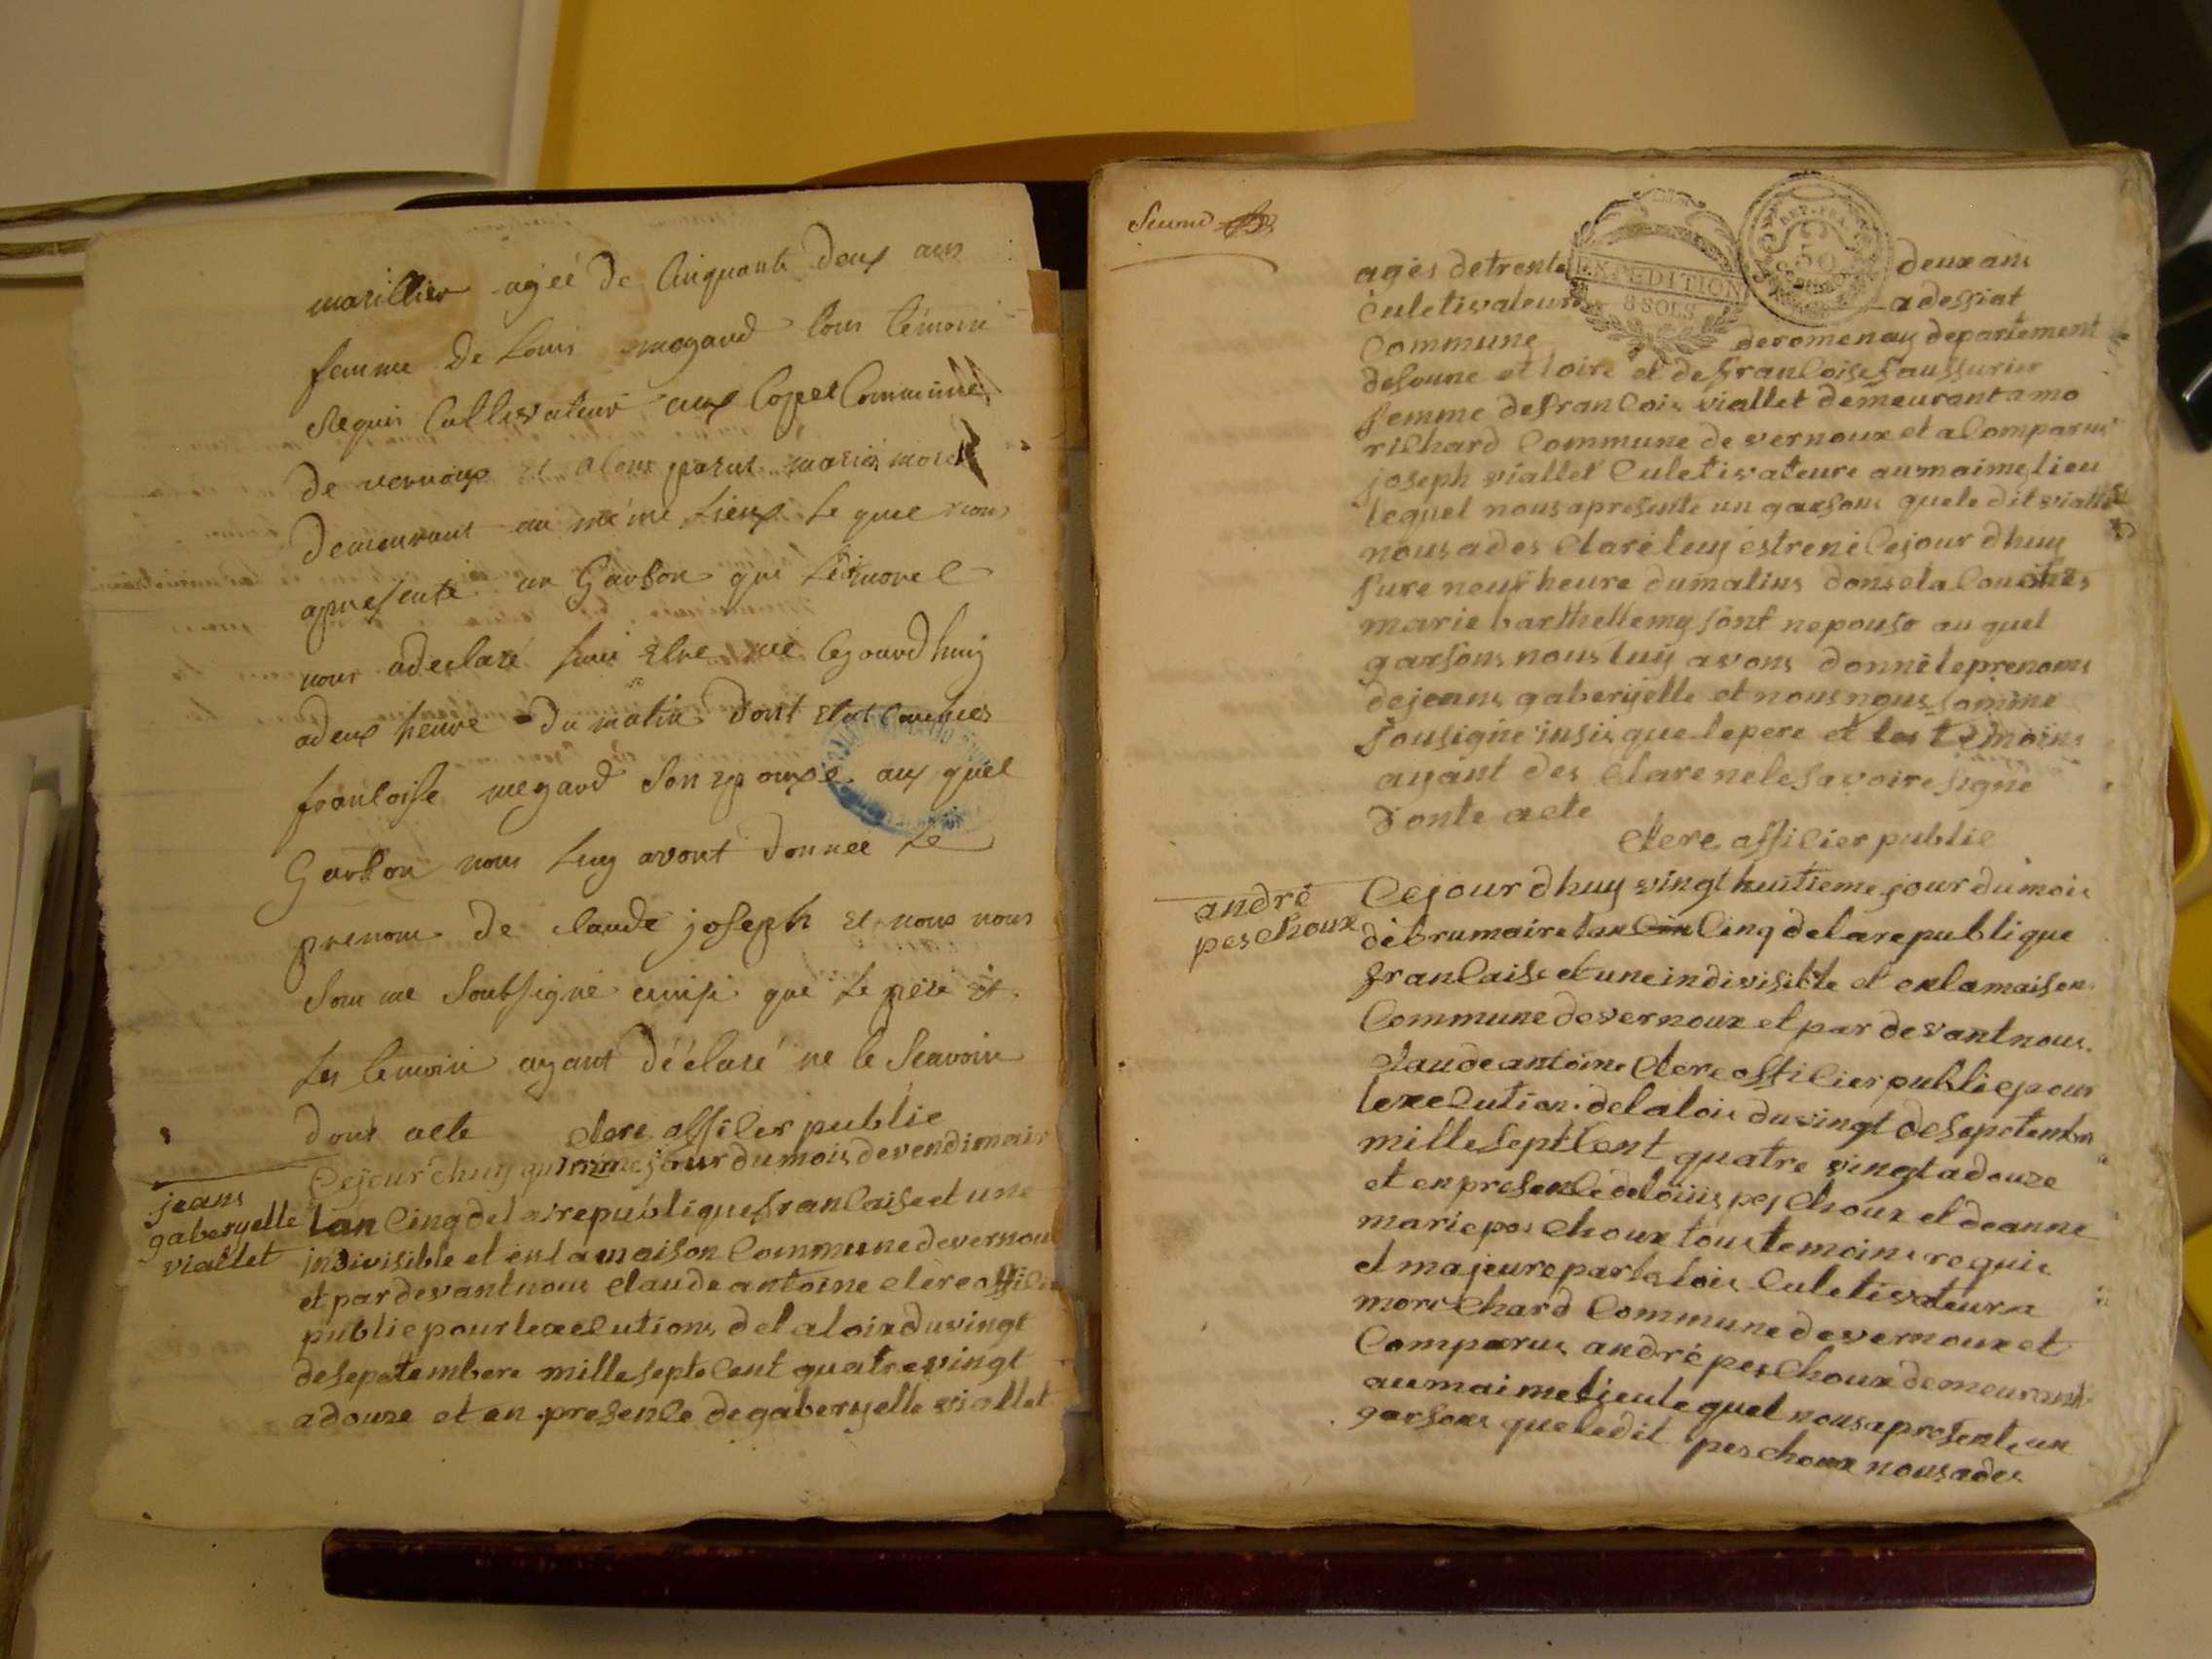 marillier agéé de Cinquante deux ans
femme de Louis megard tous témoin
Requis Cultivateur aux Copet Commune
de vernoux et a Comparut mariés morel
demeurant au méme Lieux Le quel nous
apresente un Garson que Ledi morel
nous adeclaré luis Etre né Cejourdhuij
adeux heure du matin dont Etat Couchés
franCoise megard Son epouse aux quel
Garson nous Luy avont donneé Le
prenom de claude joseph et nous nous
Somme Soubsigné ainsi que Le peré et
Les temoin ayant déclaré ne le Scavoir
dont acte clere affiCier publie
jeans
gaberyelle
viallet
Cejour dhuy quinzime jour du mois de vendimair
Lan Cinq de la republique franCaise et une
indivisible et en La maison Commune de vernou
et par devant nous claude antoine clere affiCie
publie pour lexeCutions de la loix du vingt
de sepetembere mille septe Cent quatre vingt
adouze et en presenCe de gaberyelle viallet
Second
EXPEDITION
8 SOLS
REP. FRA
50
agés de trente deux ans
Culetivateure adessiat
Commune de romenay departement
de Soune et Loire et de franCoise faussurier
femme de franCois viallet demeurant a mo
richard Commune de vernoux et a Comparus
joseph viallet Culetivateure au maime lieu
lequel nous apresente un garsons que le dit viallet
nous a des claré luy estre né Cejour dhuy
sure neuf heure du matins dons eta Couchés
marie barthellemy sont nepouse au quel
garsons nous luy avons donné le prenoms
de jeans gaberyelle et nous nous somme
sousigné insis que le pere et les temoins
ayant des clare ne le savoire signe
donte acte
clere affiCier publie
andré
peschoux
Cejour dhuy vingt huitieme jour du mois
de brumaire lan Cinq de la republique
franCaise et une indivisible et en la maison
Commune de vernoux et par devant nous
claude antoine clere affiCier publie pour
lexeCution de la lois du vingt de sepetembre
mille sept Cent quatre vingt a douze
et en presenCe de loiiis peschoux et de anne
marie peschoux tous temoins requis
et majeure par la lois Culetivateur a
morichard Commune de vernoux et
Comparus andré peschoux demeurant
au maime lieu le quel nous apresente un
garsons que ledit peschoux nous a des